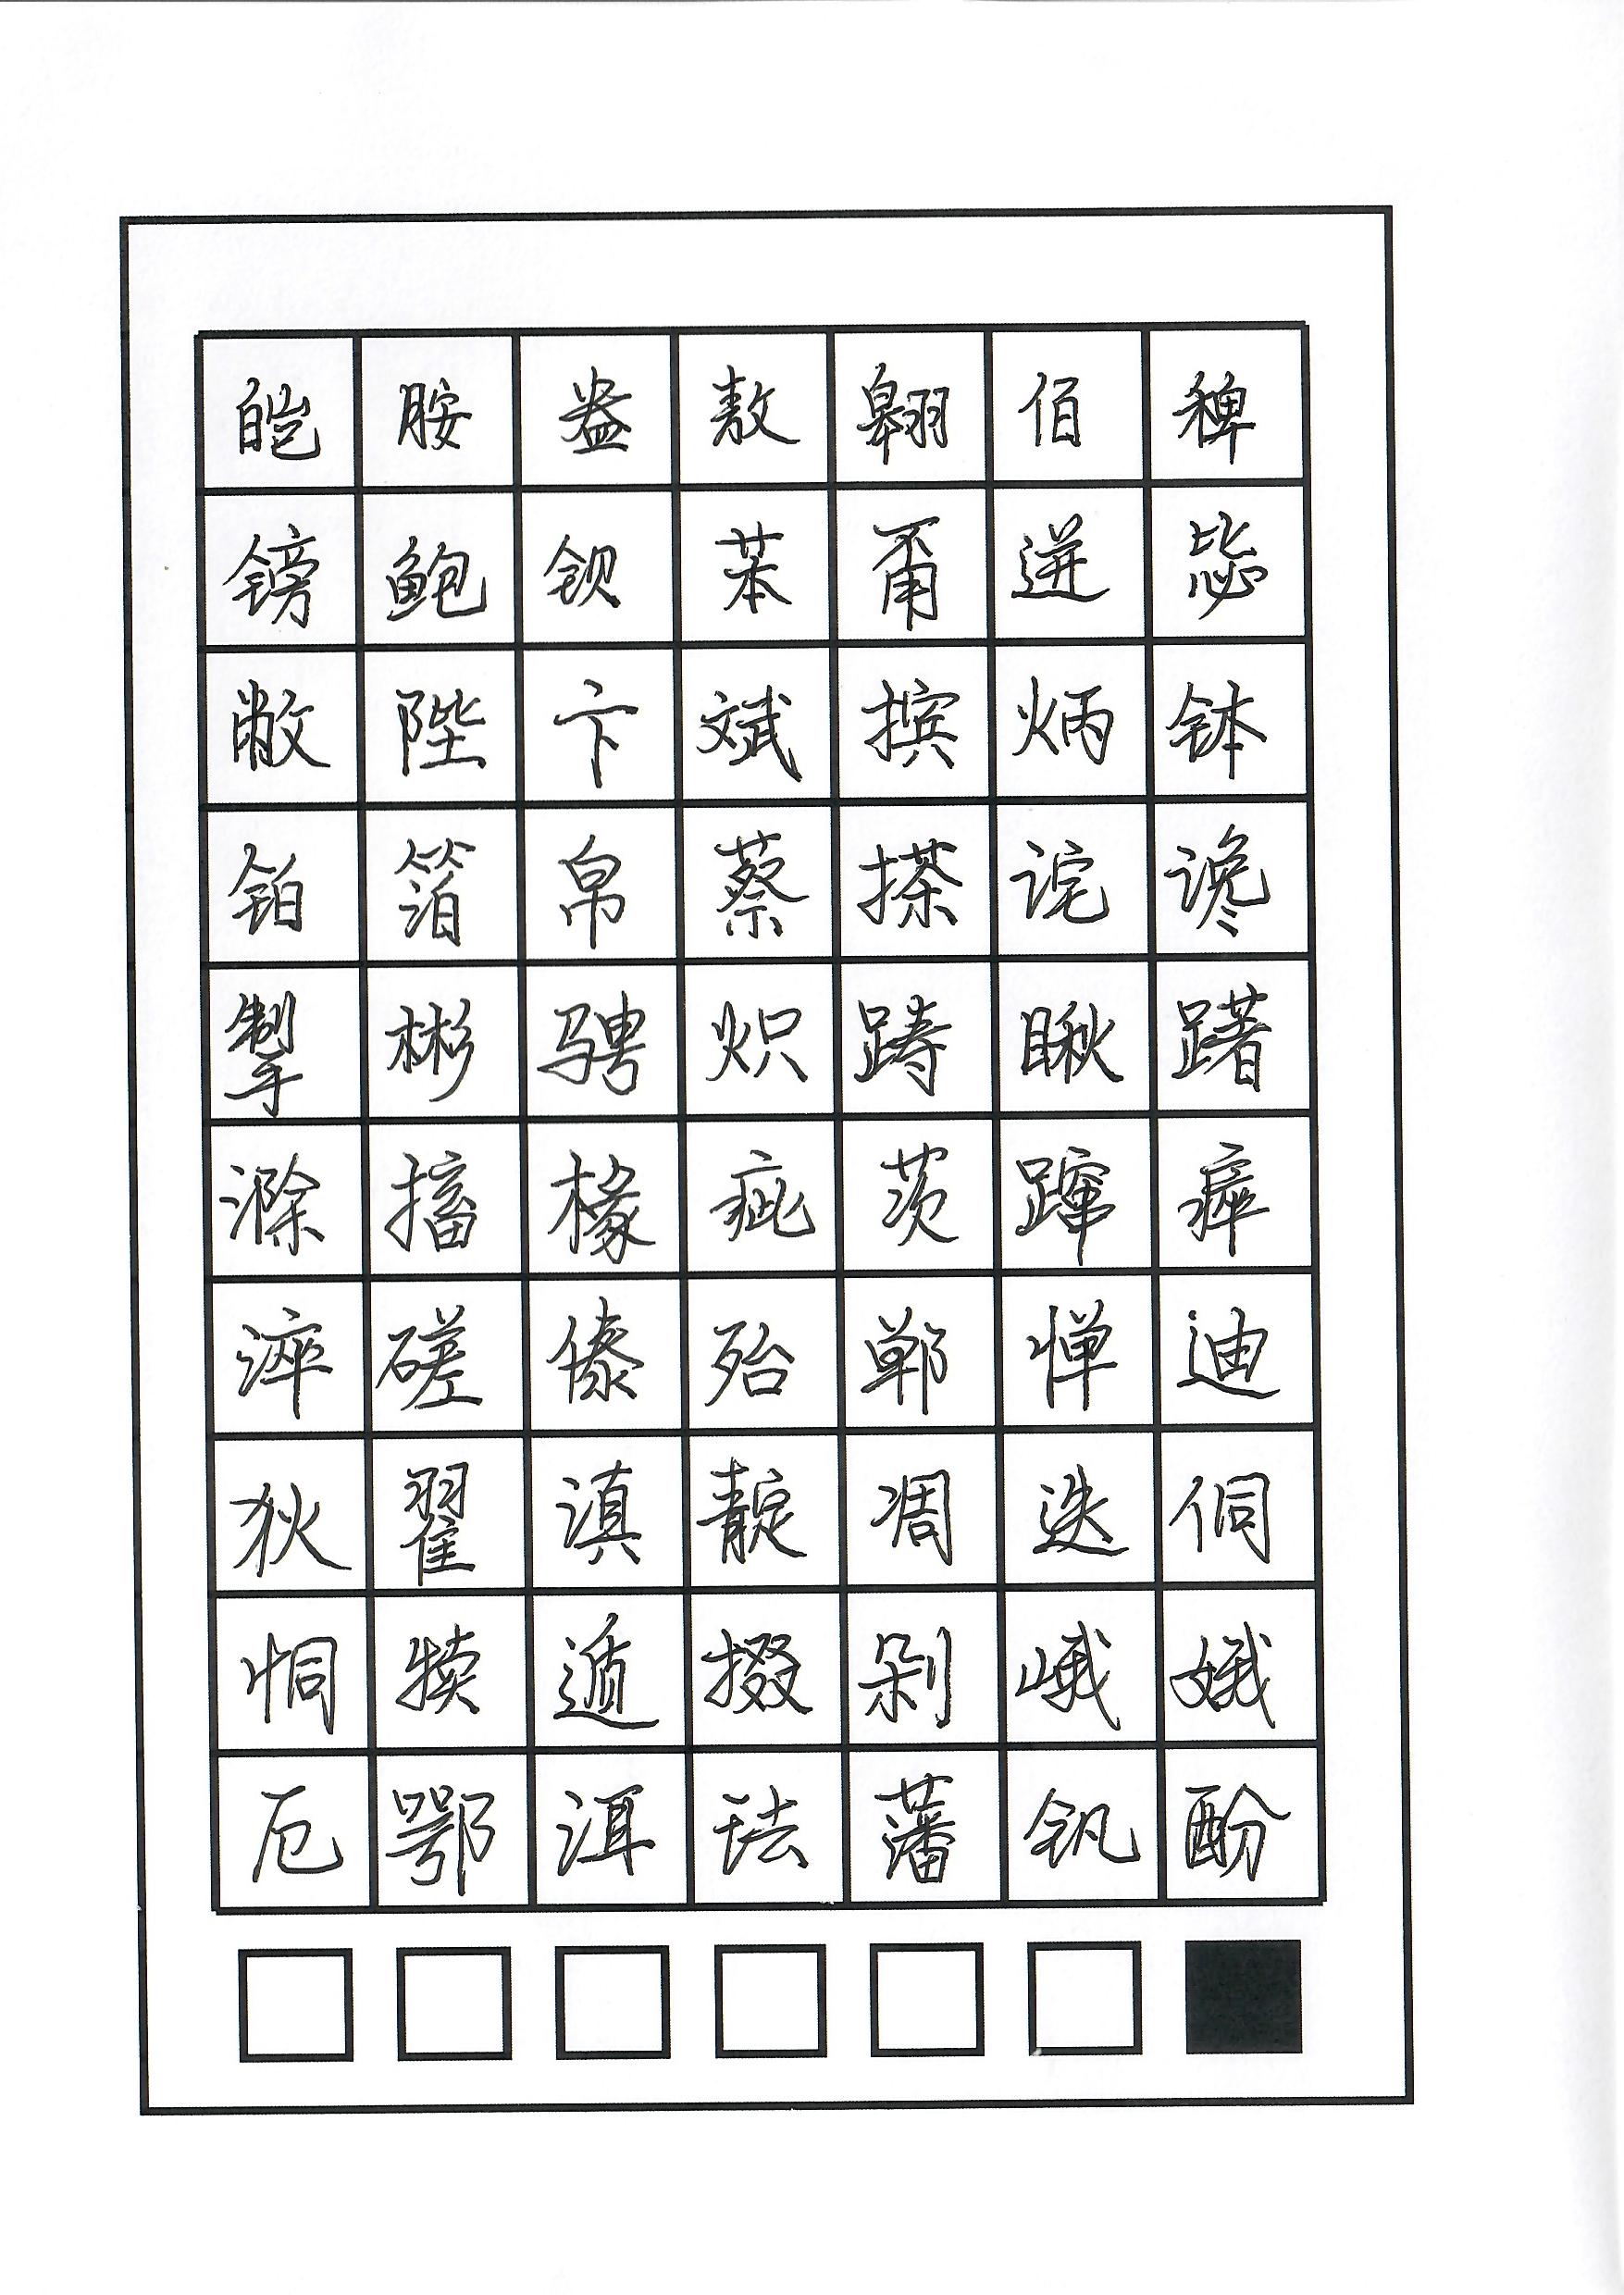 皑胺盎敖翱佰稗
镑鲍钡苯甭迸毖
敝陛卞斌摈炳钵
铂箔帛蔡搽诧谗
掣彬骋炽踌瞅躇
滁搐椽疵茨蹿瘁
淬磋傣殆郸惮迪
狄翟滇靛凋迭侗
恫犊遁掇剁峨娥
厄鄂洱珐藩钒酚